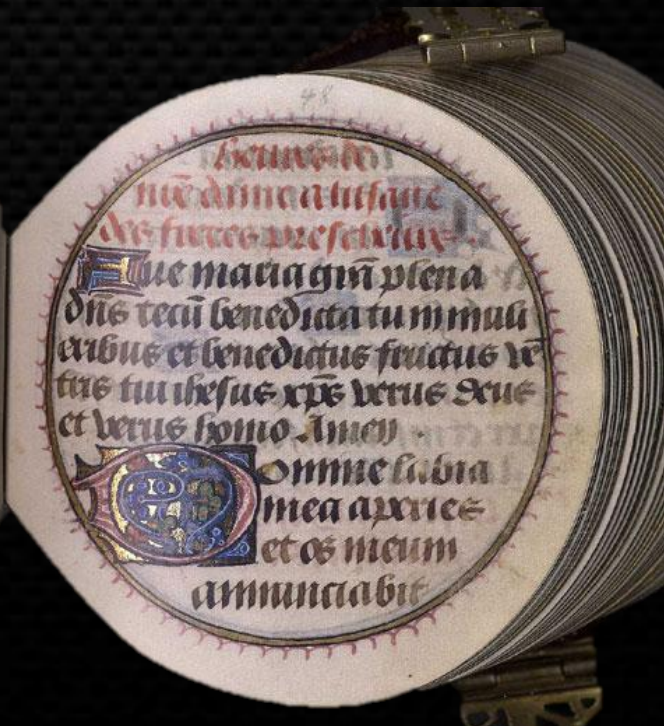 48
heures de
nr̄e dame a lusaige
des freres prescheurs
Aue maria grā plena
dn̄s tecū benedicta tu in muli
eribus et benedictus fructus vē
tris tui ihesus xp̄s verus deus
et verus homo Amen
Domine labia
mea aperies
et os meum
annunciabit